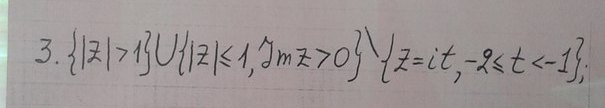 3. {|z|>1}∪{|z|≤1, Im z>0}\{z=it, -2≤t<-1};